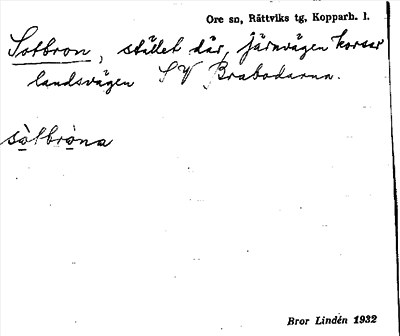 Ore sn, Rättviks tg, Kopparb. l.
Sotbron, stället där järnvägen korsar
landsvägen SV Brabodarna.
sòtbròna
Bror Lindén 1932